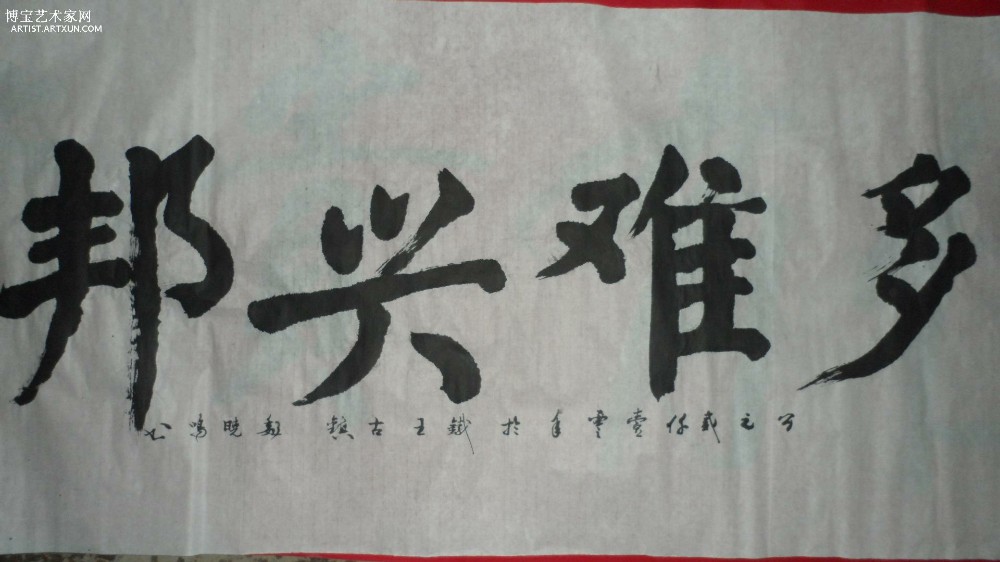 博宝艺术家网
ARTIST.ARTXUN.COM
多难兴邦
公元贰仟壹零年于铁王古镇 魏晓鸣书